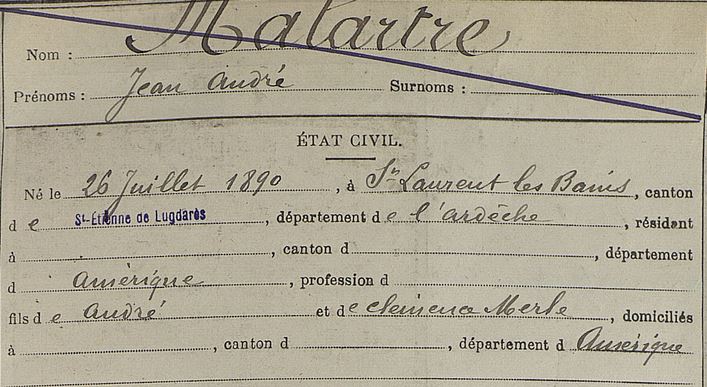 Nom : Malartre
Prénoms : Jean André Surnoms :
ÉTAT CIVIL.
Né le 26 Juillet 1890, à St Laurent les Bains, canton
de St-Étienne de Lugdarès, département de l'ardèche, résidant
à , canton d , département
d amérique, profession d
fils de andré et de clemence Merle, domiciliés
à , canton d , département d Amérique